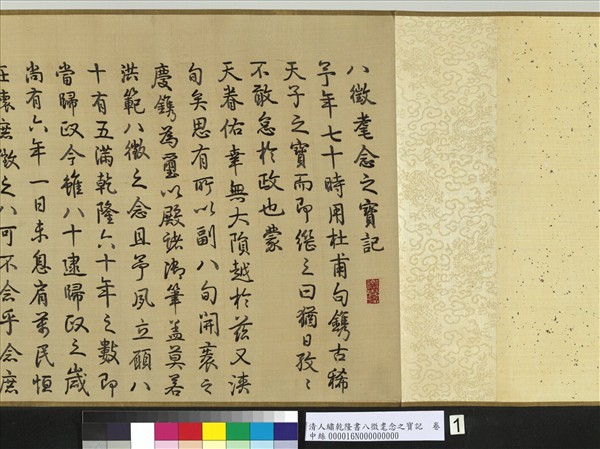 八徵耄念之寶記
予年七十時用杜甫句鐫古稀
天子之寶而即繼之曰猶日孜〻
不敢怠於政也蒙
天眷佑幸無大隕越於茲又浹
旬矣思有所以副八旬開袠之
慶鐫為璽以殿諸御筆蓋莫若
洪範八徵之念且予夙立願八
十有五滿乾隆六十年之數即
當歸政今雖八十逮歸政之歲
尚有六年一日未息肩萬民恒
在懷庶徵之八可不念乎念庶
清人繡乾隆書八徵耄念之寶記 卷
中絲000016N000000000
1